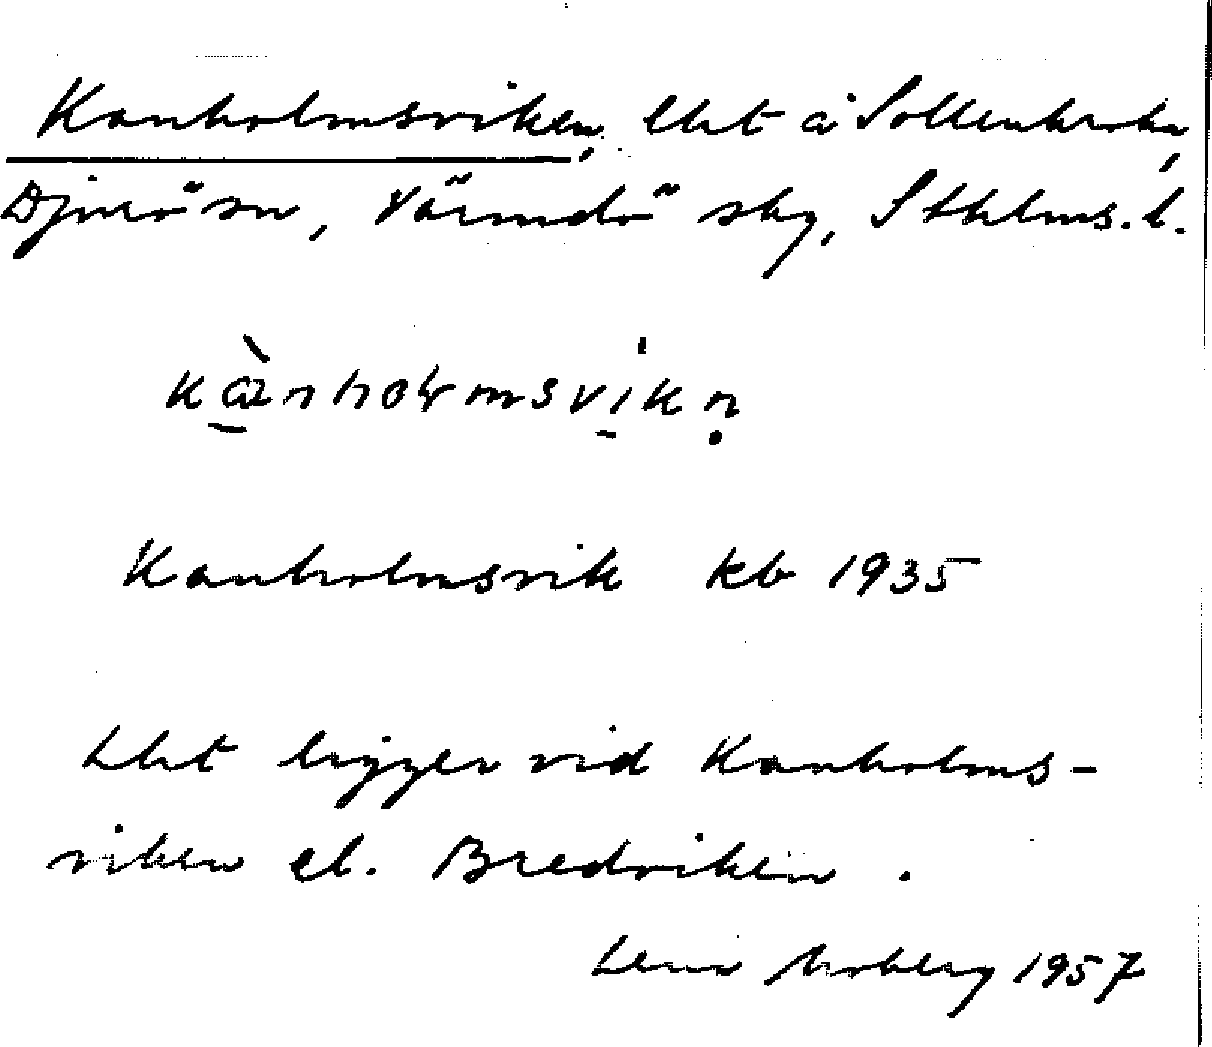 Kanholmsviken, lht å Sollenkroka,
Djurö sn, Värmdö skg, Sthlms. l.
kànholmsvikṇ
Kanholmsvik kb 1935
Lht ligger vid Kanholms-
viken el. Bredviken.
Lena Moberg 1957